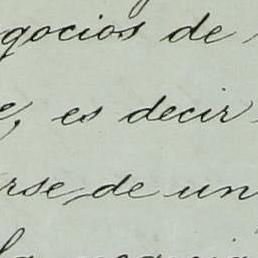 gocios de
e, es decir
rse de un